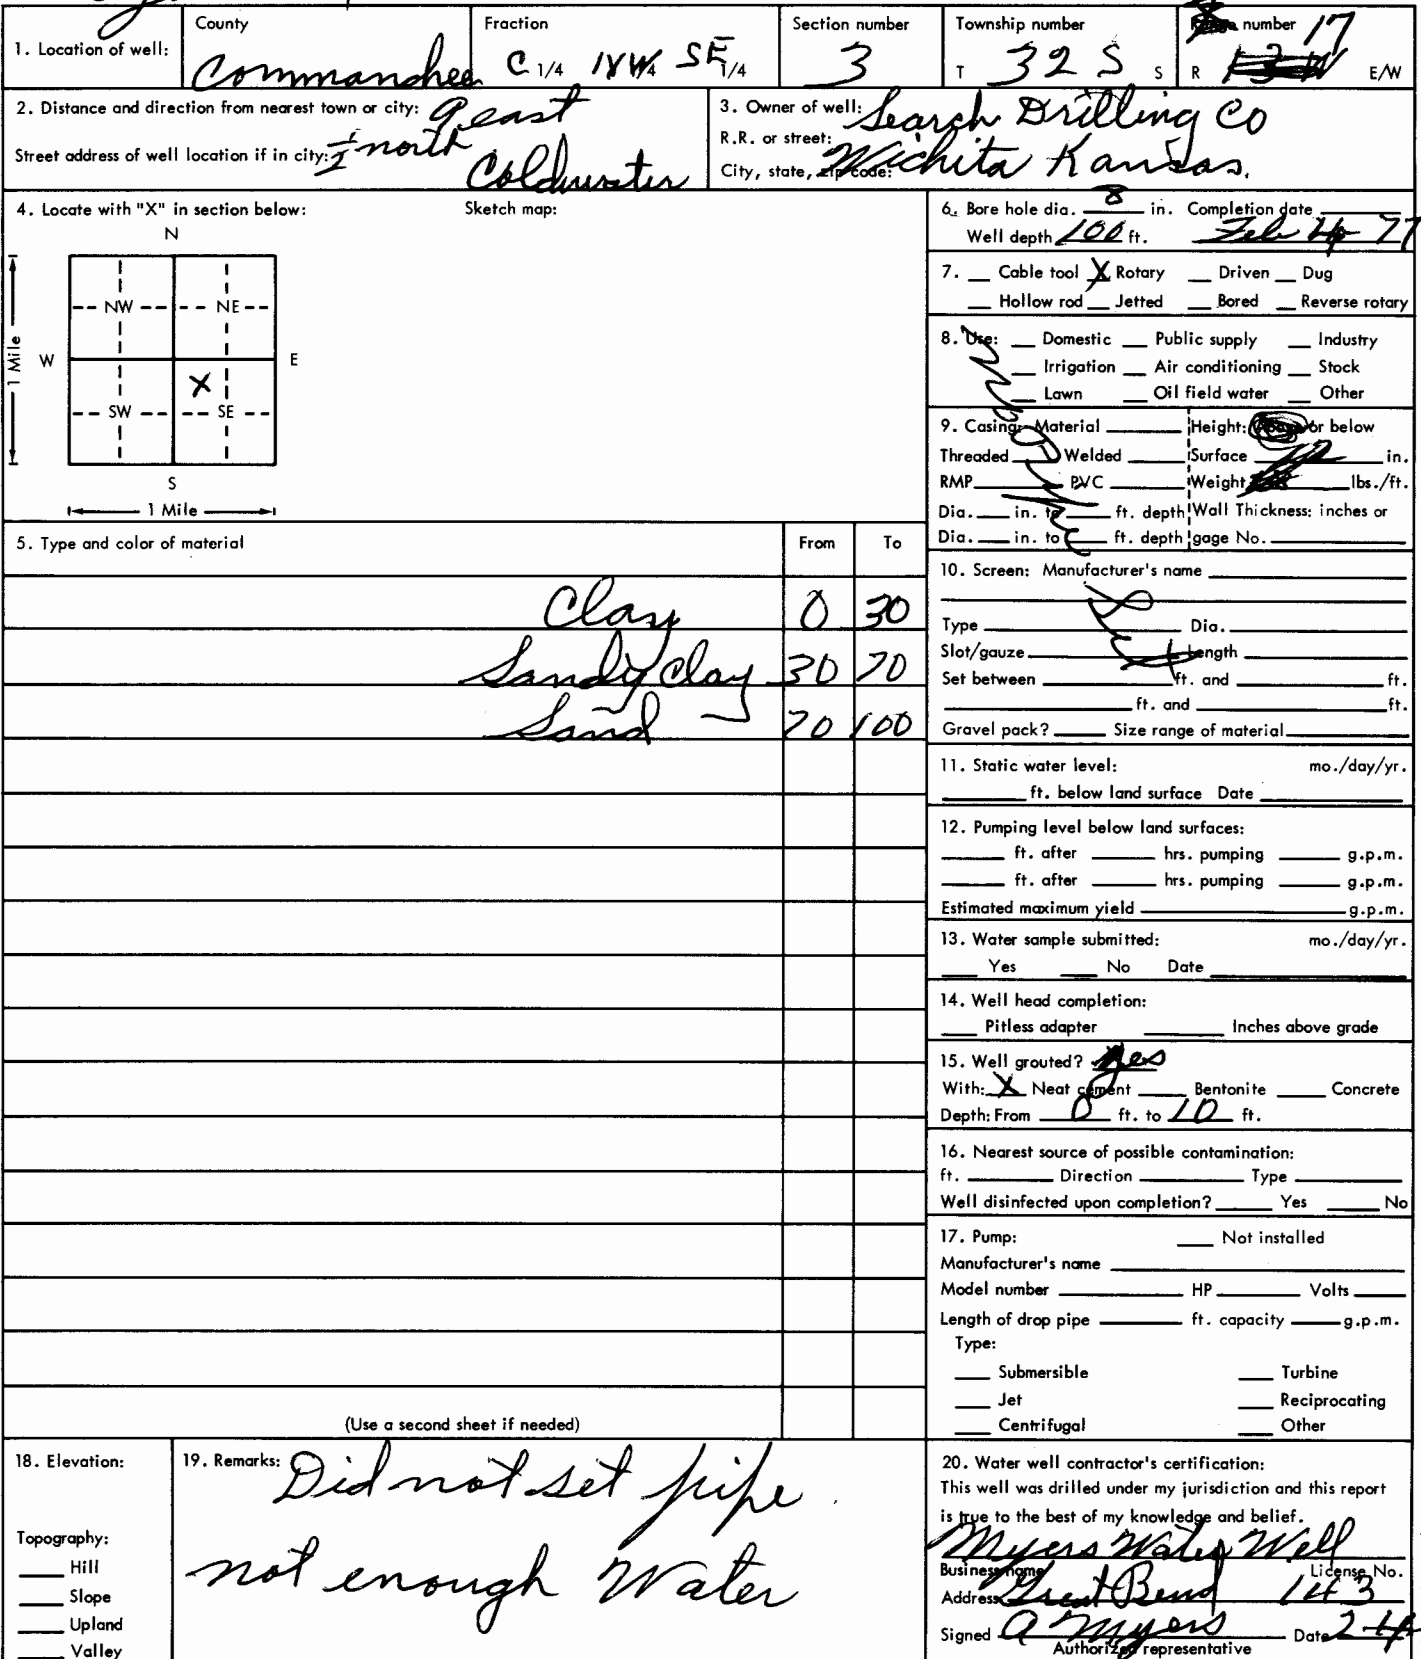 1. Location of well: County Commanchee Fraction C 1/4 NW 1/4 SE 1/4 Section number 3 Township number T 32 S S number R 17 E/W
2. Distance and direction from nearest town or city: 9 east
Street address of well location if in city: 1/2 north
Coldwater
3. Owner of well: Search Drilling Co
R.R. or street:
City, state, zip code: Wichita Kansas.
4. Locate with "X" in section below: Sketch map:
N
NW NE
W E
X
SW SE
S
1 Mile
1 Mile
5. Type and color of material From To
Clay 0 30
Sandy Clay 30 70
Sand 70 100
(Use a second sheet if needed)
6. Bore hole dia. 8 in. Completion date
Well depth 100 ft. Feb 4 77
7. Cable tool X Rotary Driven Dug
Hollow rod Jetted Bored Reverse rotary
8. Use: Domestic Public supply Industry
Irrigation Air conditioning Stock
Lawn Oil field water Other
9. Casing: Material Height: or below
Threaded Welded Surface in.
RMP PVC Weight lbs./ft.
Dia. in. to ft. depth Wall Thickness: inches or
Dia. in. to ft. depth gage No.
10. Screen: Manufacturer's name
Type Dia.
Slot/gauze Length
Set between ft. and ft.
ft. and ft.
Gravel pack? Size range of material
11. Static water level: mo./day/yr.
ft. below land surface Date
12. Pumping level below land surfaces:
ft. after hrs. pumping g.p.m.
ft. after hrs. pumping g.p.m.
Estimated maximum yield g.p.m.
13. Water sample submitted: mo./day/yr.
Yes No Date
14. Well head completion:
Pitless adapter Inches above grade
15. Well grouted? yes
With: X Neat cement Bentonite Concrete
Depth: From 0 ft. to 10 ft.
16. Nearest source of possible contamination:
ft. Direction Type
Well disinfected upon completion? Yes No
17. Pump: Not installed
Manufacturer's name
Model number HP Volts
Length of drop pipe ft. capacity g.p.m.
Type:
Submersible Turbine
Jet Reciprocating
Centrifugal Other
18. Elevation:
Topography:
Hill
Slope
Upland
Valley
19. Remarks: Did not set pipe
not enough Water
20. Water well contractor's certification:
This well was drilled under my jurisdiction and this report
is true to the best of my knowledge and belief.
Myers Water Well
Business name License No.
Address Great Bend 143
Signed A Myers Date 2-4
Authorized representative